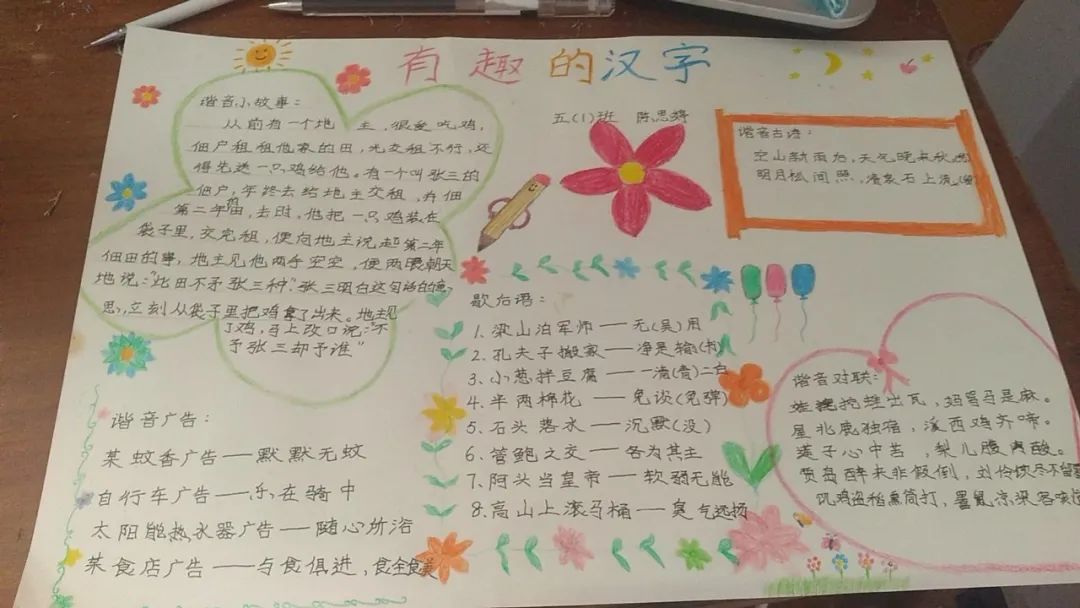 有趣的汉字
五(1)班 陈思婷
谐音小故事：
从前有一个地 主，很爱吃鸡，
佃户租租他家的田，光交租不行，还
得先送一只鸡给他。有一个叫张三的
佃户，年终去给地主交租，并佃
第二年的田，去时，他把一只鸡装在
袋子里，交完租，便向地主说起第二年
佃田的事，地主见他两手空空，便两眼朝天
地说："此田不予张三种"。张三明白这句话的意
思，立刻从袋子里把鸡拿了出来。地主见
了鸡，马上改口说："不
予张三却予谁"
谐音古诗：
空山新雨后，天气晚来秋
明月松间照，清泉石上流
歇后语：
1. 梁山泊军师——无(吴)用
2. 孔夫子搬家——净是输(书)
3. 小葱拌豆腐——一清(青)二白
4. 半两棉花——免谈(免弹)
5. 石头落水——沉默(没)
6. 管鲍之交——各为其主
7. 阿头当皇帝——软弱无能
8. 高山上滚马桶——臭气远扬
谐音广告：
某蚊香广告——默默无蚊
自行车广告——乐在骑中
太阳能热水器广告——随心所浴
某食店广告——与食俱进，食全食美
谐音对联：
挖出瓦，妈骂马是麻。
屋北鹿独宿，溪西鸡齐啼。
莲子心中苦，梨儿腹内酸。
贾岛醉来非假倒，刘伶饮尽不留
饥鸡盗稻童筒打，暑鼠凉梁客咳